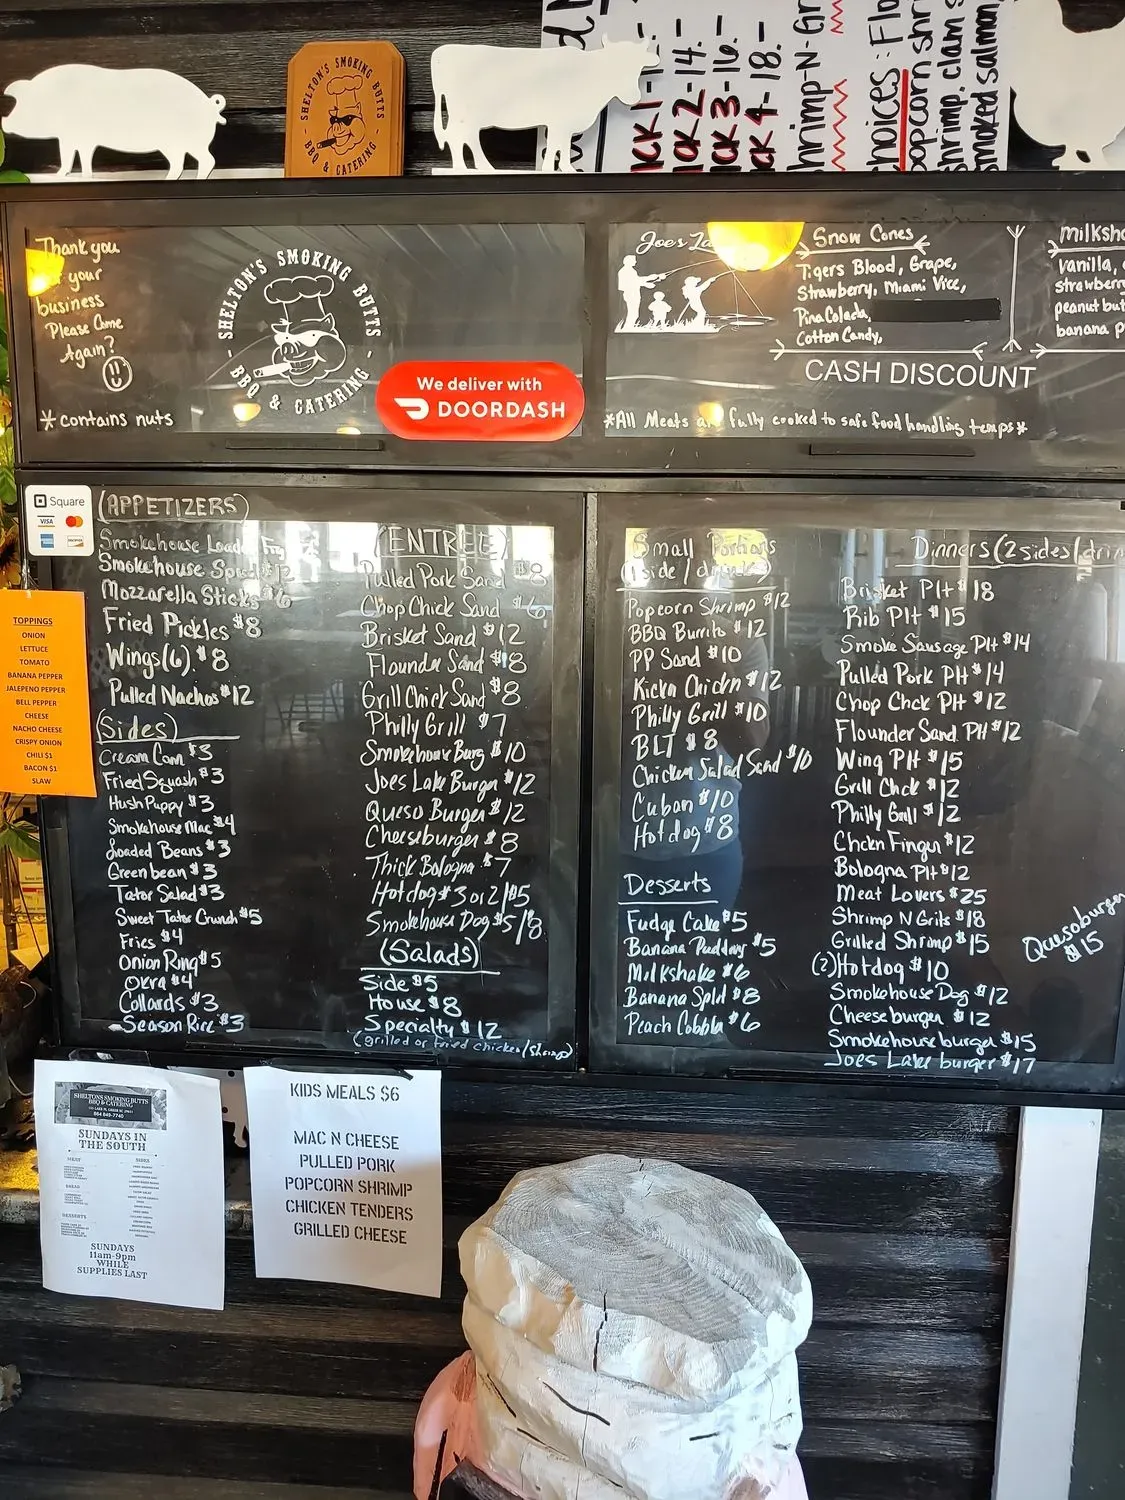 SHELTON'S SMOKING BUTTS
BBQ & CATERING
1-
2-14.-
3-16.-
4-18.-
Choices:
popcorn
shrimp, clam
smoked salmon,
Thank you
your
business
Please Come
Again?
*contains nuts
SHELTON'S SMOKING BUTTS
- BBQ & CATERING -
We deliver with
DOORDASH
Joes
Snow Cones
Tigers Blood, Grape,
Strawberry, Miami Vice,
Pina Colada,
Cotton Candy,
vanilla,
peanut
banana
CASH DISCOUNT
*All Meats are fully cooked to safe food handling temps*
Square
VISA
DISCOVER
TOPPINGS
ONION
LETTUCE
TOMATO
BANANA PEPPER
JALEPENO PEPPER
BELL PEPPER
CHEESE
NACHO CHEESE
CRISPY ONION
CHILI $1
BACON $1
SLAW
(APPETIZERS)
Smokehouse
Smokehouse
Mozzarella Sticks $6
Fried Pickles $8
Wings(6) $8
Pulled Nachos $12
(Sides)
Cream Corn $3
Fried Squash $3
Hush Puppy $3
Smokehouse Mac $4
Loaded Beans $3
Green bean $3
Tator Salad $3
Sweet Tator Crunch $5
Fries $4
Onion Ring $5
Okra $4
Collards $3
Season Rice $3
(ENTREE)
Pulled Pork Sand $8
Chop Chick Sand $6
Brisket Sand $12
Flounder Sand $8
Grill Chick Sand $8
Philly Grill $7
Smokehouse Burg $10
Joes Lake Burger $12
Queso Burger $12
Cheeseburger $8
Thick Bologna $7
Hotdog $3 or 2/$5
Smokehouse Dog $5/8
(Salads)
Side $5
House $8
Specialty $12
(grilled or fried chicken/shrimp)
Small Portions
(1 side/drink)
Popcorn Shrimp $12
BBQ Burrito $12
PP Sand $10
Kickn Chickn $12
Philly Grill $10
BLT $8
Chicken Salad Sand $10
Cuban $10
Hotdog $8
Desserts
Fudge Cake $5
Banana Pudding $5
Milkshake $6
Banana Split $8
Peach Cobbla $6
Dinners (2 sides/drin
Brisket Plt $18
Rib Plt $15
Smoke Sausage Plt $14
Pulled Pork Plt $14
Chop Chck Plt $12
Flounder Sand Plt $12
Wing Plt $15
Grill Chck $12
Philly Grill $12
Chckn Finger $12
Bologna Plt $12
Meat Lovers $25
Shrimp N Grits $18
Grilled Shrimp $15
(2) Hotdog $10
Smokehouse Dog $12
Cheeseburger $12
Smokehouse burger $15
Joes Lake burger $17
Quesoburger
$15
SHELTONS SMOKING BUTTS
BBQ & CATERING
864 849-7740
SUNDAYS IN
THE SOUTH
MEAT
SIDES
BREAD
DESSERTS
SUNDAYS
11am-9pm
WHILE
SUPPLIES LAST
KIDS MEALS $6
MAC N CHEESE
PULLED PORK
POPCORN SHRIMP
CHICKEN TENDERS
GRILLED CHEESE